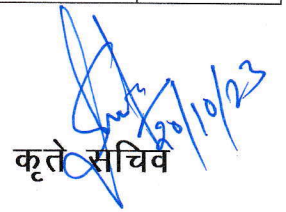 20/10/23
कृते सचिव